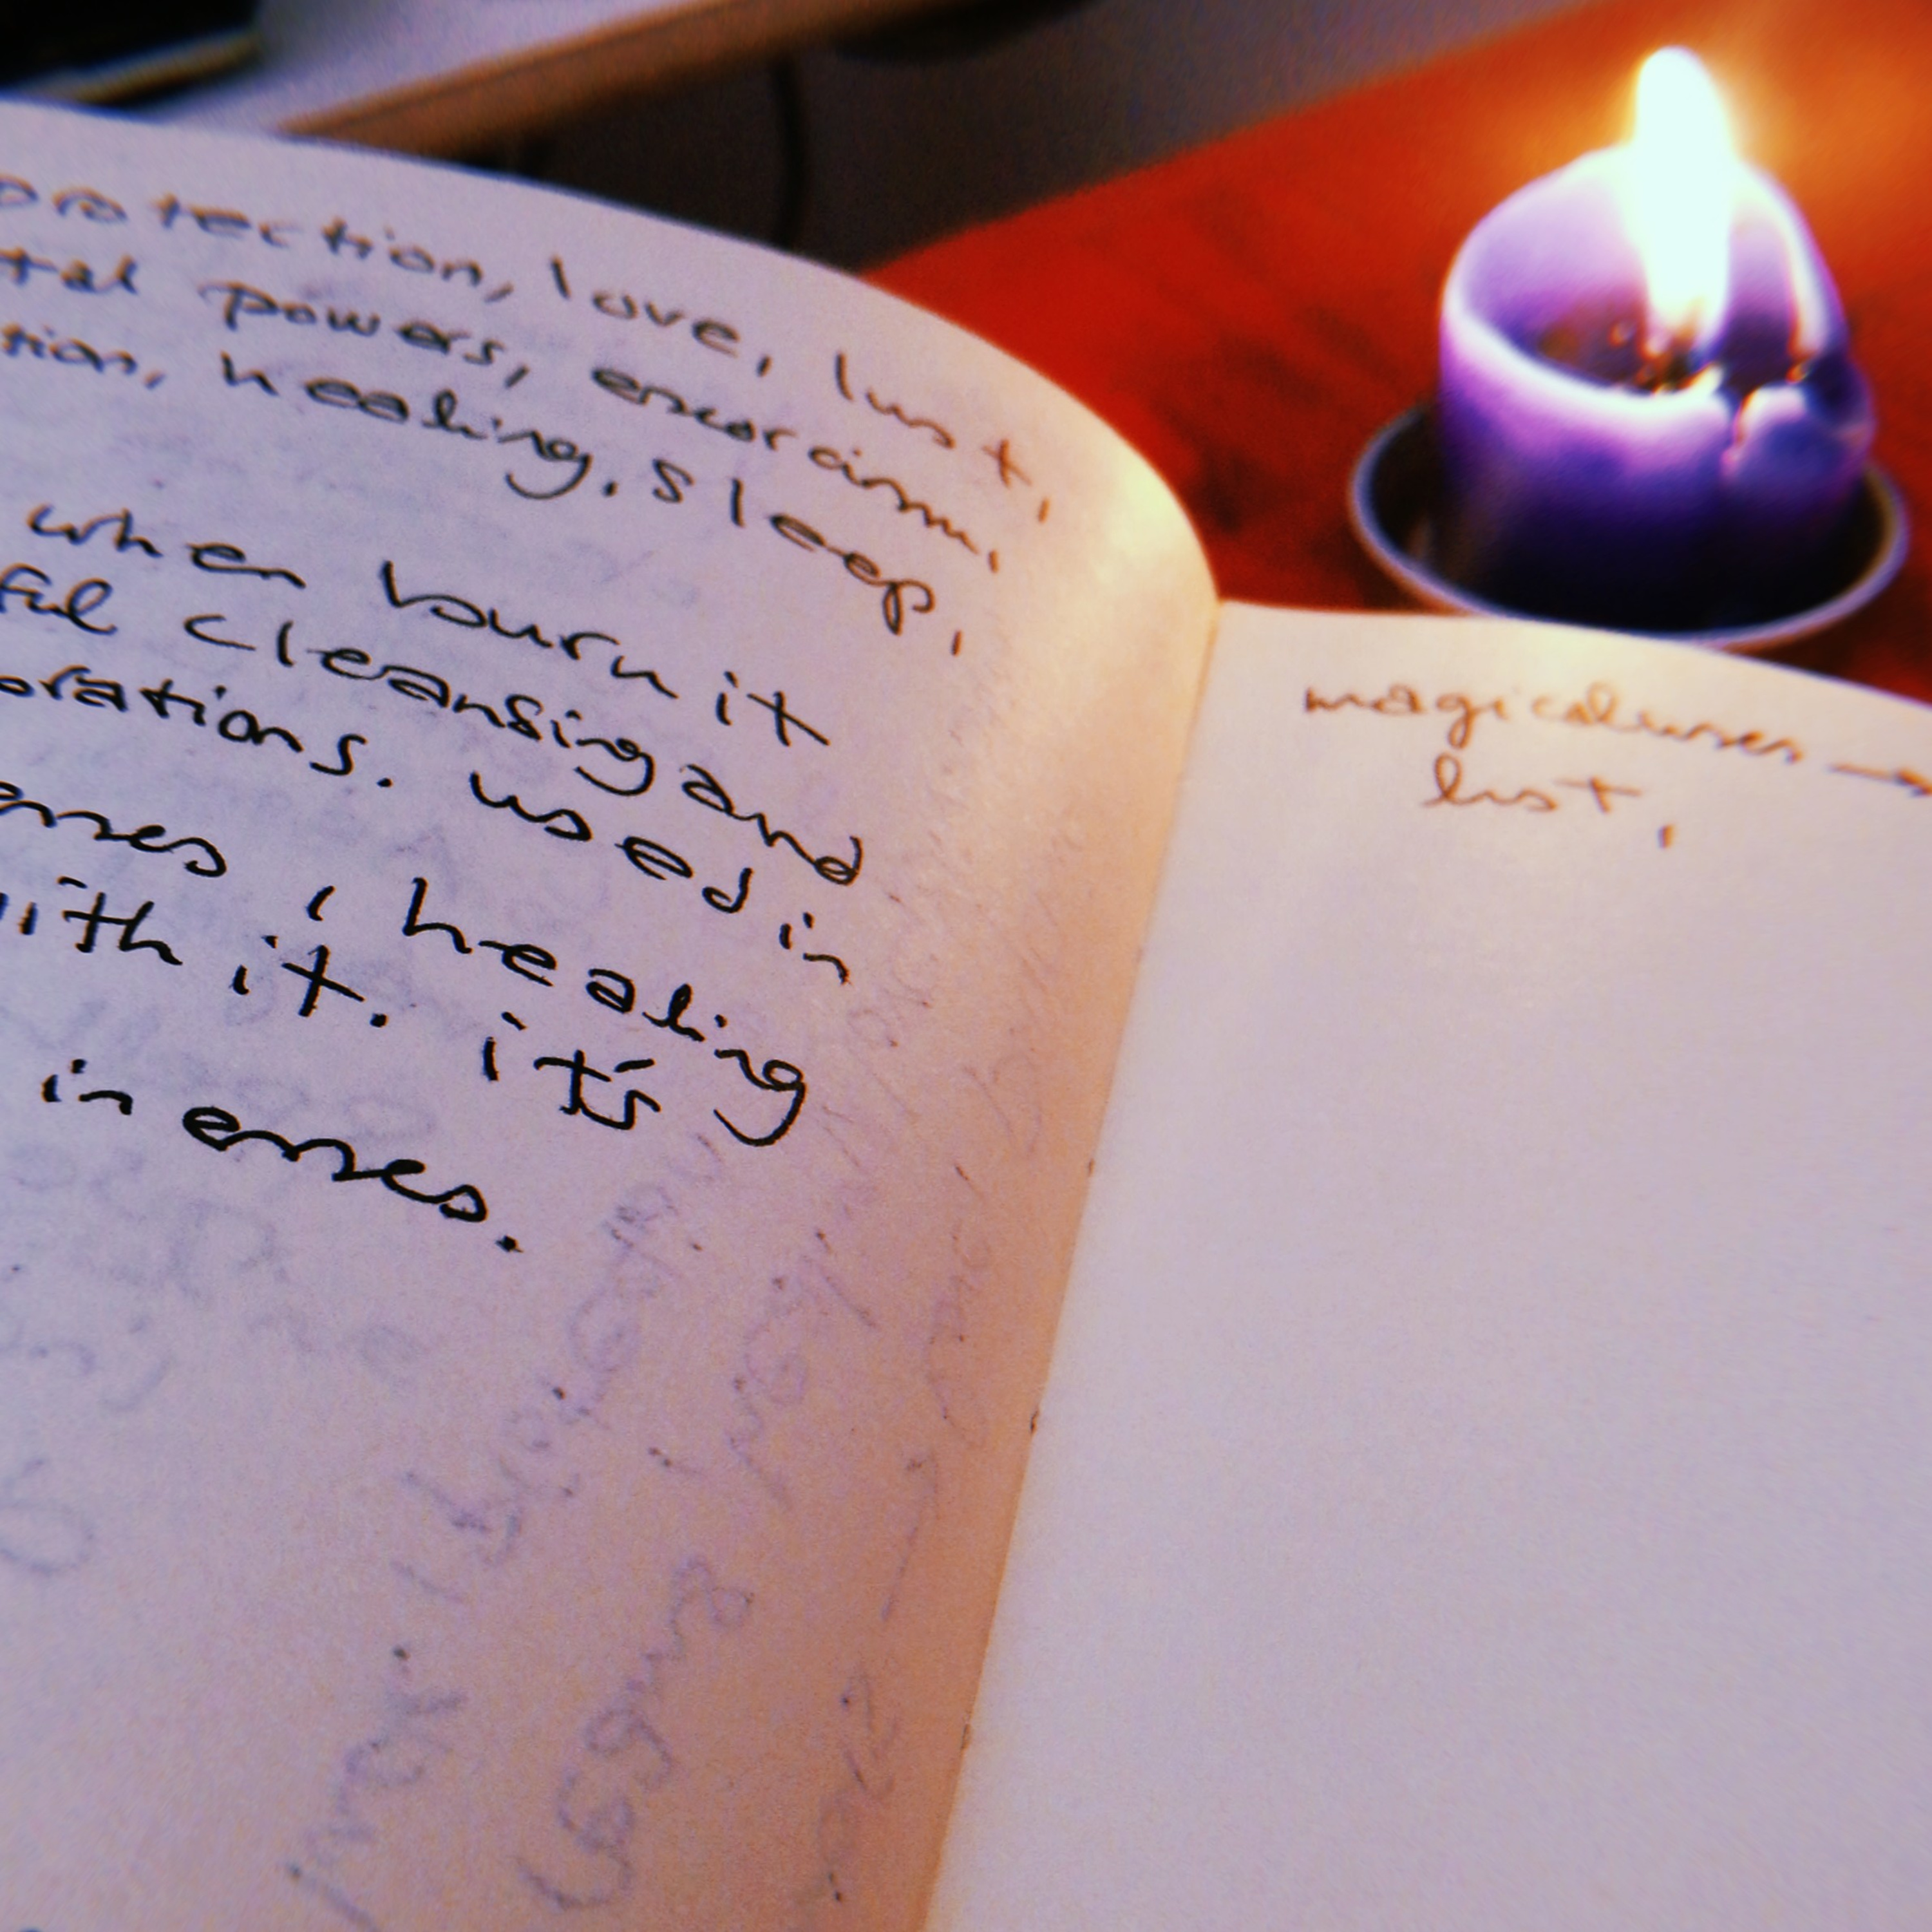 protection, love, lust,
tal powers, exorcism,
tion, healing, sleep,
when bourn it
ful cleansing and
orations. used in
enses, healing
with it. it's
in enses.
magical uses →
lust,